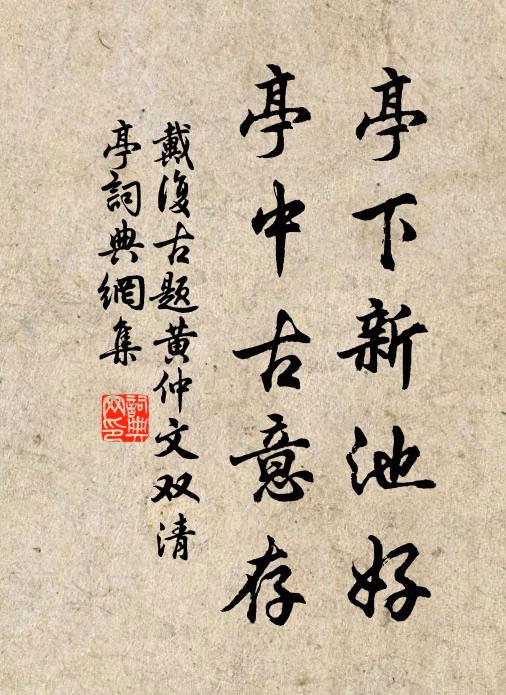 亭下新池好
亭中古意存
戴復古題黄仲文双清
亭詞典網集
詞典
网印